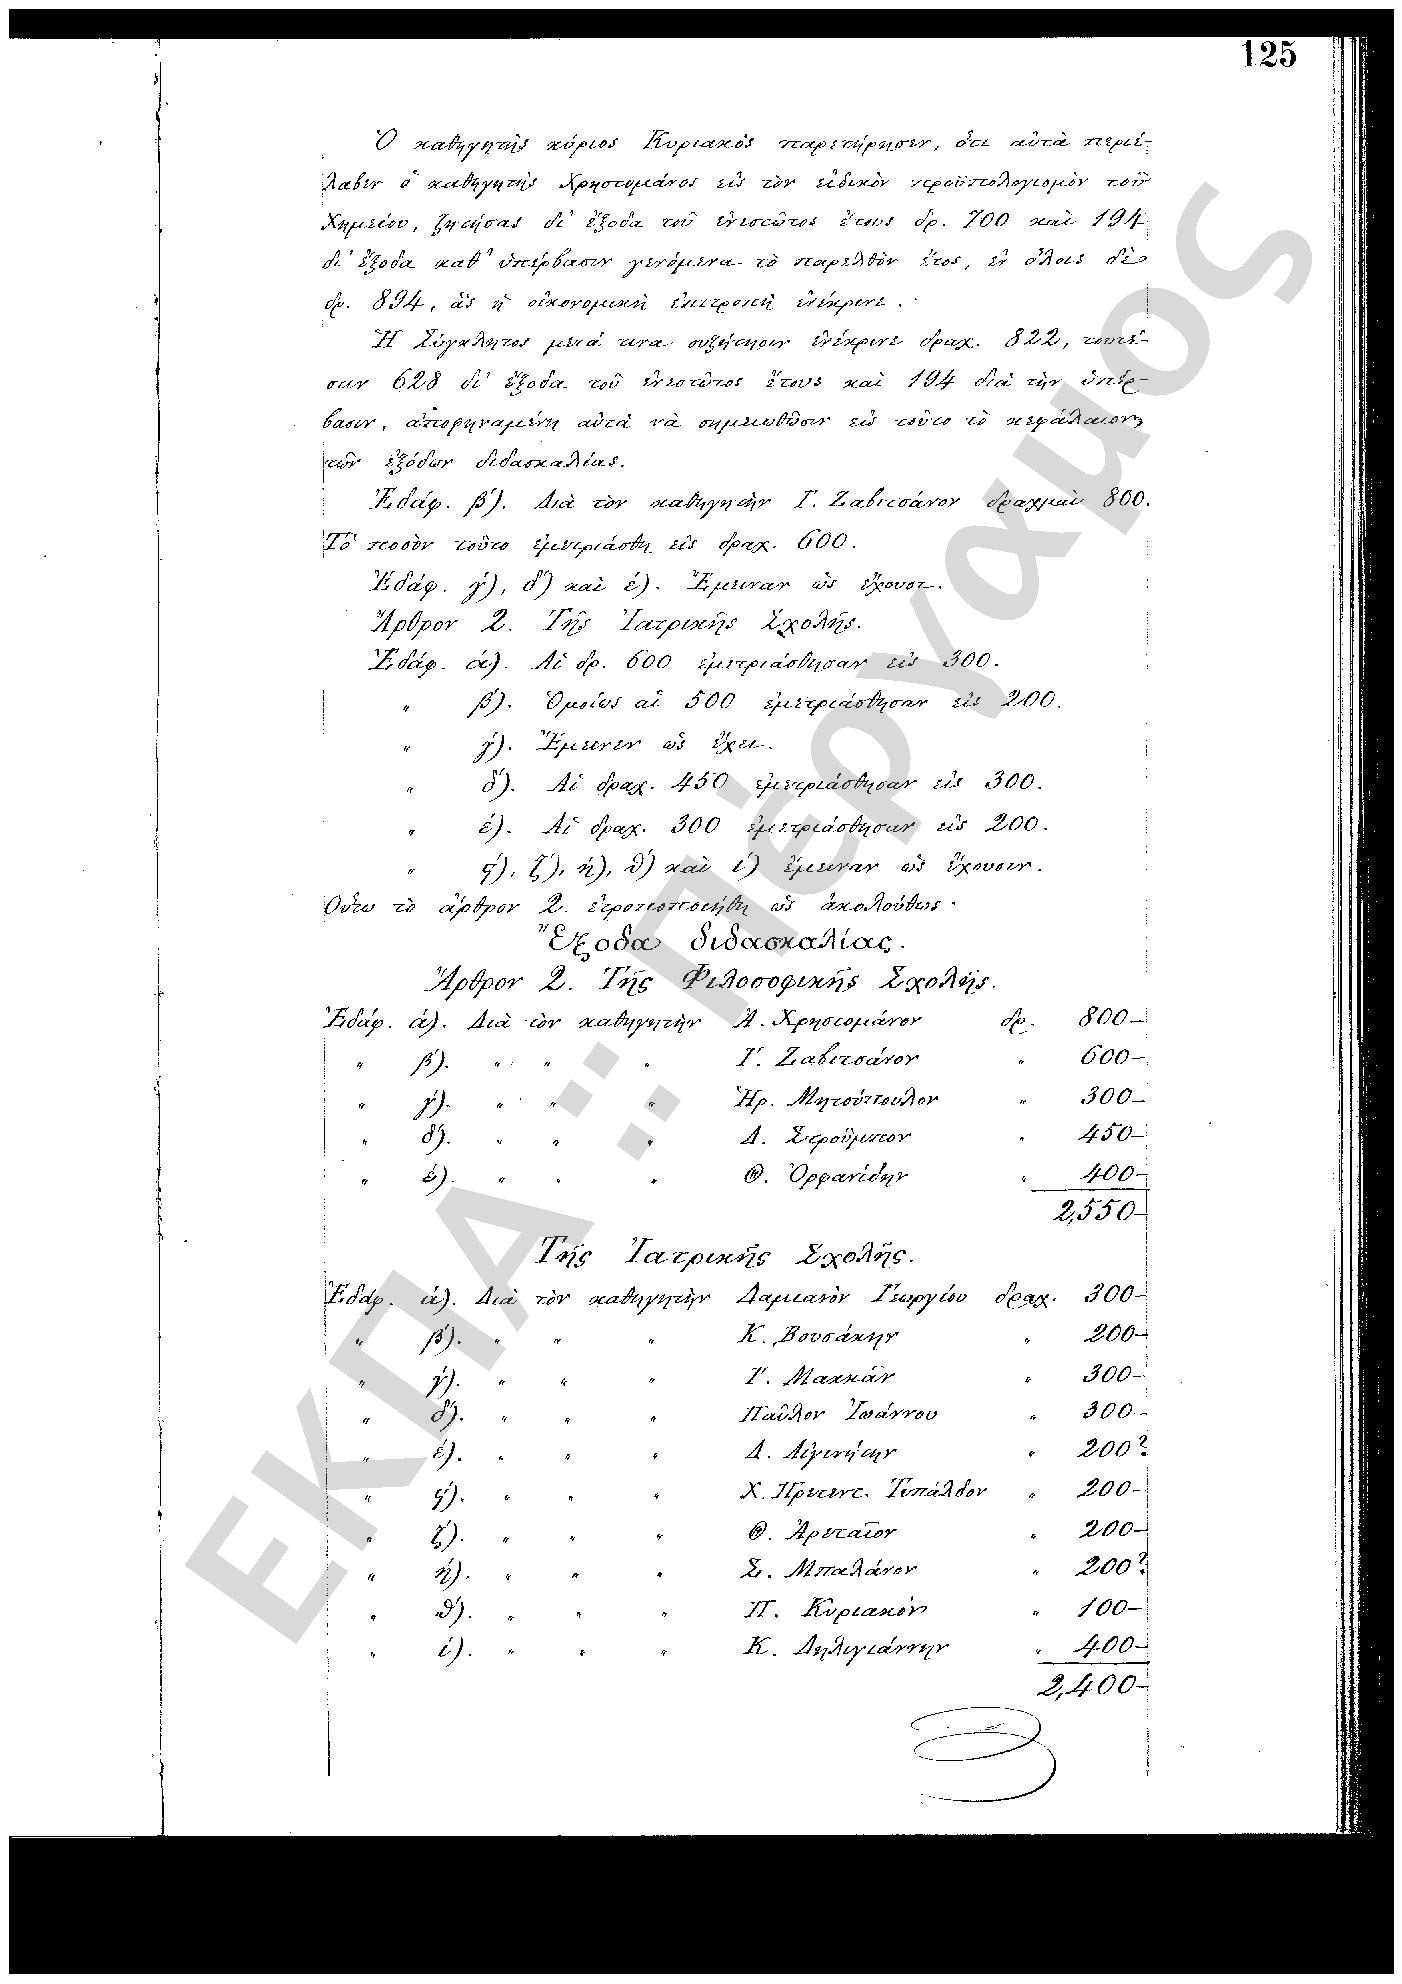 125
Ὁ καθηγητὴς κύριος Κυριακὸς παρετήρησεν, ὅτι αὐτὰ περιέ-
λαβεν ὁ καθηγητὴς Χρηστομάνος εἰς τὸν εἰδικὸν προϋπολογισμὸν τοῦ
Χημείου, ζητήσας δι' ἔξοδα τοῦ ἐνεστῶτος ἔτους δρ. 700 καὶ 194
δι' ἔξοδα καθ' ὑπέρβασιν γενόμενα τὸ παρελθὸν ἔτος, ἐν ὅλοις δὲ
δρ. 894, ἃς ἡ οἰκονομικὴ ἐπιτροπὴ ἐνέκρινε.
Ἡ Σύγκλητος μετά τινα συζήτησιν ἐνέκρινε δραχ. 822, τουτέ-
στιν 628 δι' ἔξοδα τοῦ ἐνεστῶτος ἔτους καὶ 194 διὰ τὴν ὑπέρ-
βασιν, ἀποφηναμένη αὐτὰ νὰ σημειωθῶσιν εἰς τοῦτο τὸ κεφάλαιον
τῶν ἐξόδων διδασκαλίας.
Ἐδάφ. β'). Διὰ τὸν καθηγητὴν Γ. Ζαβιτσάνον δραχμαὶ 800.
Τὸ ποσὸν τοῦτο ἐμετριάσθη εἰς δραχ. 600.
Ἐδάφ. γ'), δ') καὶ ε'). Ἔμειναν ὡς ἔχουσι.
Ἄρθρον 2. Τῆς Ἰατρικῆς Σχολῆς.
Ἐδάφ. ά). Αἱ δρ. 600 ἐμετριάσθησαν εἰς 300.
" β'). Ὁμοίως αἱ 500 ἐμετριάσθησαν εἰς 200.
" γ'). Ἔμεινεν ὡς ἔχει.
" δ'). Αἱ δραχ. 450 ἐμετριάσθησαν εἰς 300.
" έ). Αἱ δραχ. 300 ἐμετριάσθησαν εἰς 200.
" ς'), ζ'), ή), θ') καὶ ί) ἔμειναν ὡς ἔχουσιν.
Οὕτω τὸ ἄρθρον 2. ἐτροποποιήθη ὡς ἀκολούθως·
Ἔξοδα διδασκαλίας.
Ἄρθρον 2. Τῆς Φιλοσοφικῆς Σχολῆς.
Ἐδάφ. ά). Διὰ τὸν καθηγητὴν Ἀ. Χρηστομάνον δρ. 800-
" β'). " " " Γ. Ζαβιτσάνον " 600-
" γ'). " " " Ἡρ. Μητσόπουλον " 300-
" δ'). " " " Δ. Στροῦμπον " 450-
" έ). " " " Θ. Ὀρφανίδην " 400-
2,550-
Τῆς Ἰατρικῆς Σχολῆς.
Ἐδάφ. ά). Διὰ τὸν καθηγητὴν Δαμιανὸν Γεωργίου δραχ. 300-
" β'). " " " Κ. Βουσάκην " 200-
" γ'). " " " Γ. Μακκᾶν " 300-
" δ'). " " " Παῦλον Ἰωάννου " 300-
" έ). " " " Δ. Αἰγινήτην " 200?
" ς'). " " " Χ. Πρετεντ. Τυπάλδον " 200-
" ζ'). " " " Θ. Ἀρεταῖον " 200-
" ή). " " " Σ. Μπαλάνον " 200?
" θ'). " " " Π. Κυριακὸν " 100-
" ί). " " " Κ. Δηλιγιάννην " 400-
2,400-
ΕΚΠΑ :: Πέργαμος